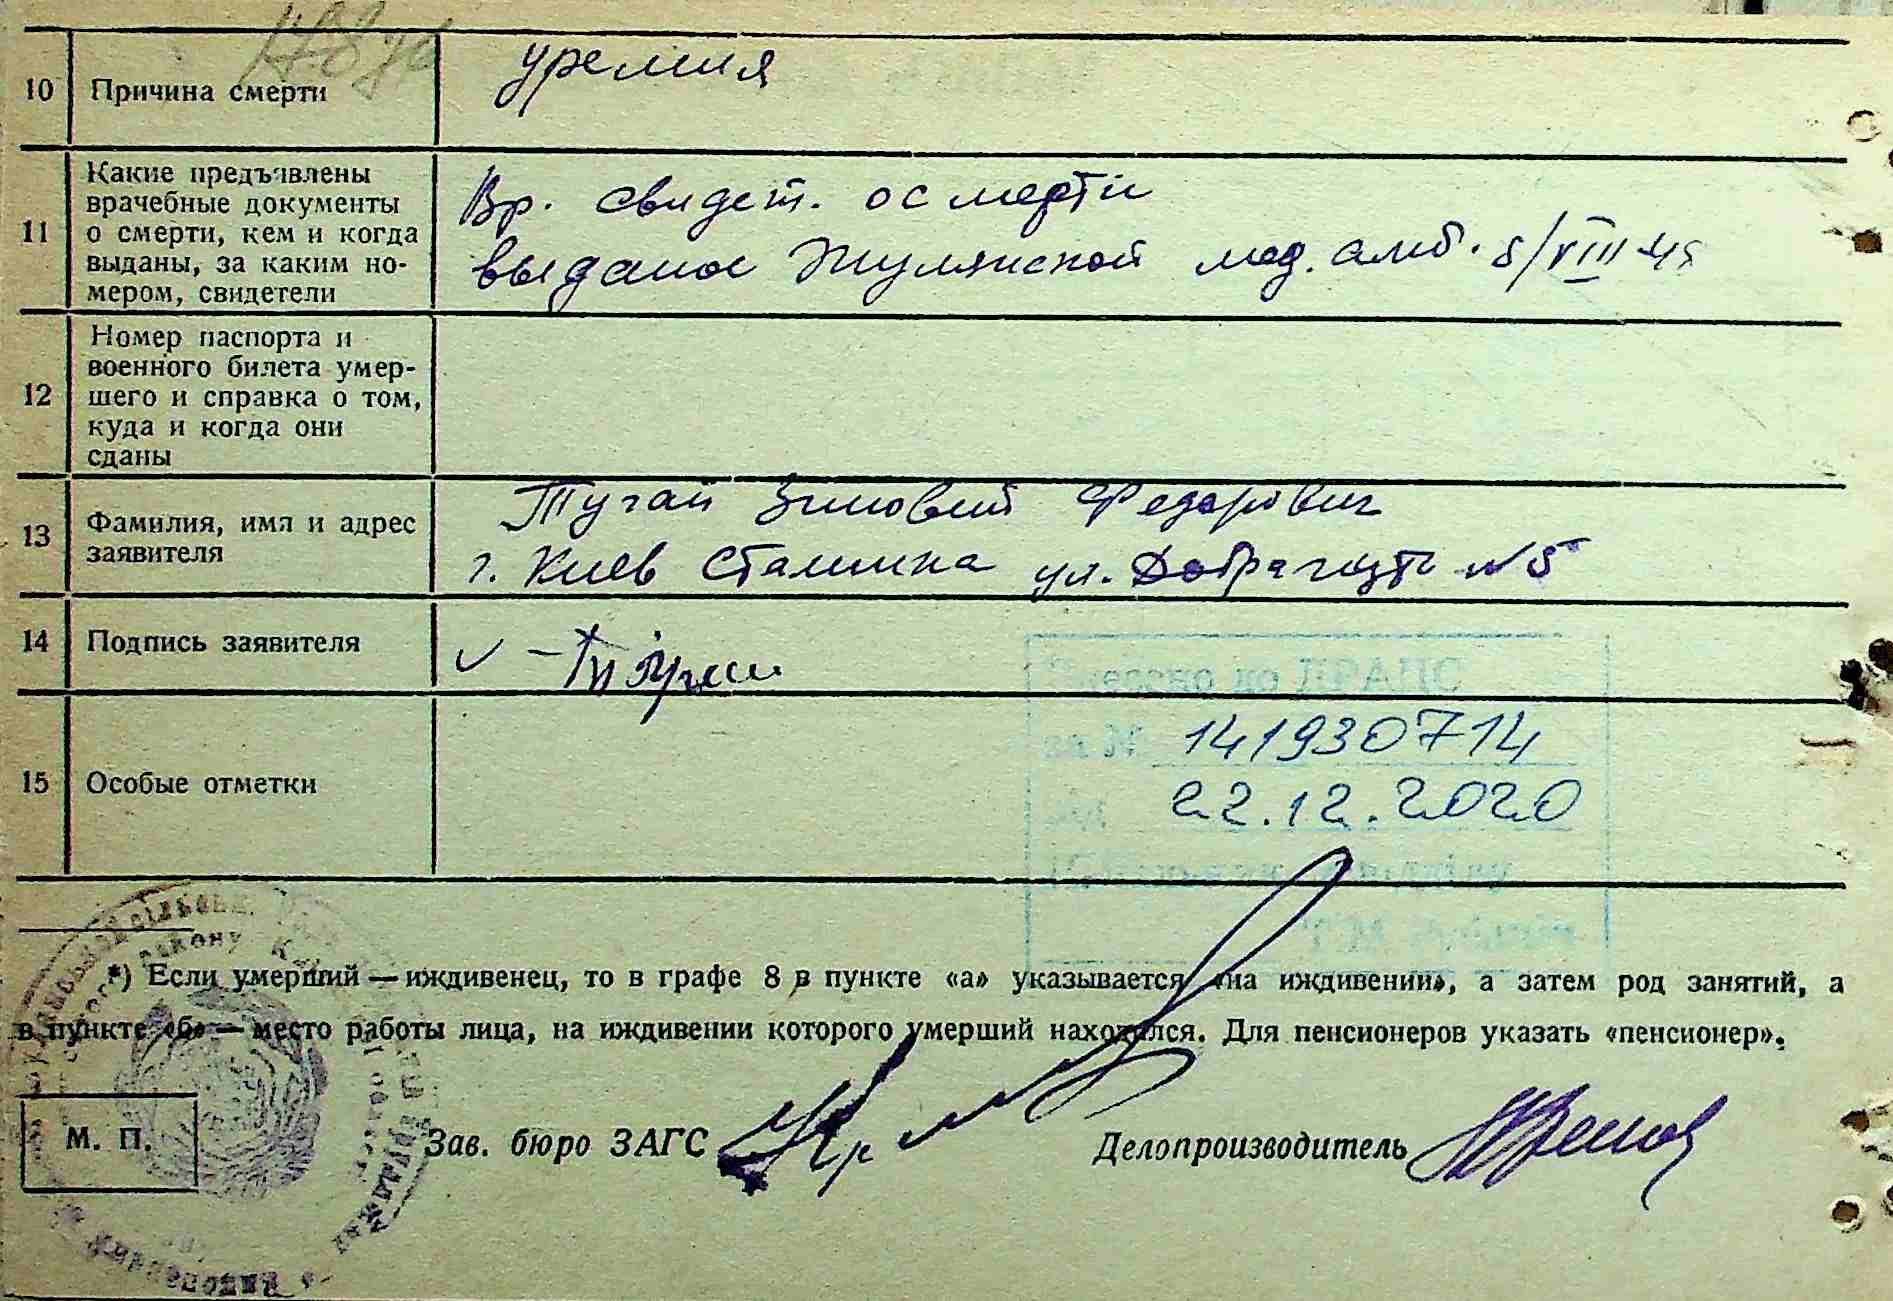 10 Причина смерти уремия
11 Какие предъявлены
врачебные документы
о смерти, кем и когда
выданы, за каким но-
мером, свидетели
Вр. свидет. о смерти
выданое Жулянской мед. амб. 5/VIII 45
12 Номер паспорта и
военного билета умер-
шего и справка о том,
куда и когда они
сданы
13 Фамилия, имя и адрес
заявителя
Тугай Зиновий Федорович
г. Киев Сталинка ул. №5
14 Подпись заявителя
15 Особые отметки
141930714
22.12.2020
*) Если умерший — иждивенец, то в графе 8 в пункте «а» указывается «на иждивении», а затем род занятий, а
в пункте «б» — место работы лица, на иждивении которого умерший находился. Для пенсионеров указать «пенсионер».
М. П.
Зав. бюро ЗАГС
Делопроизводитель